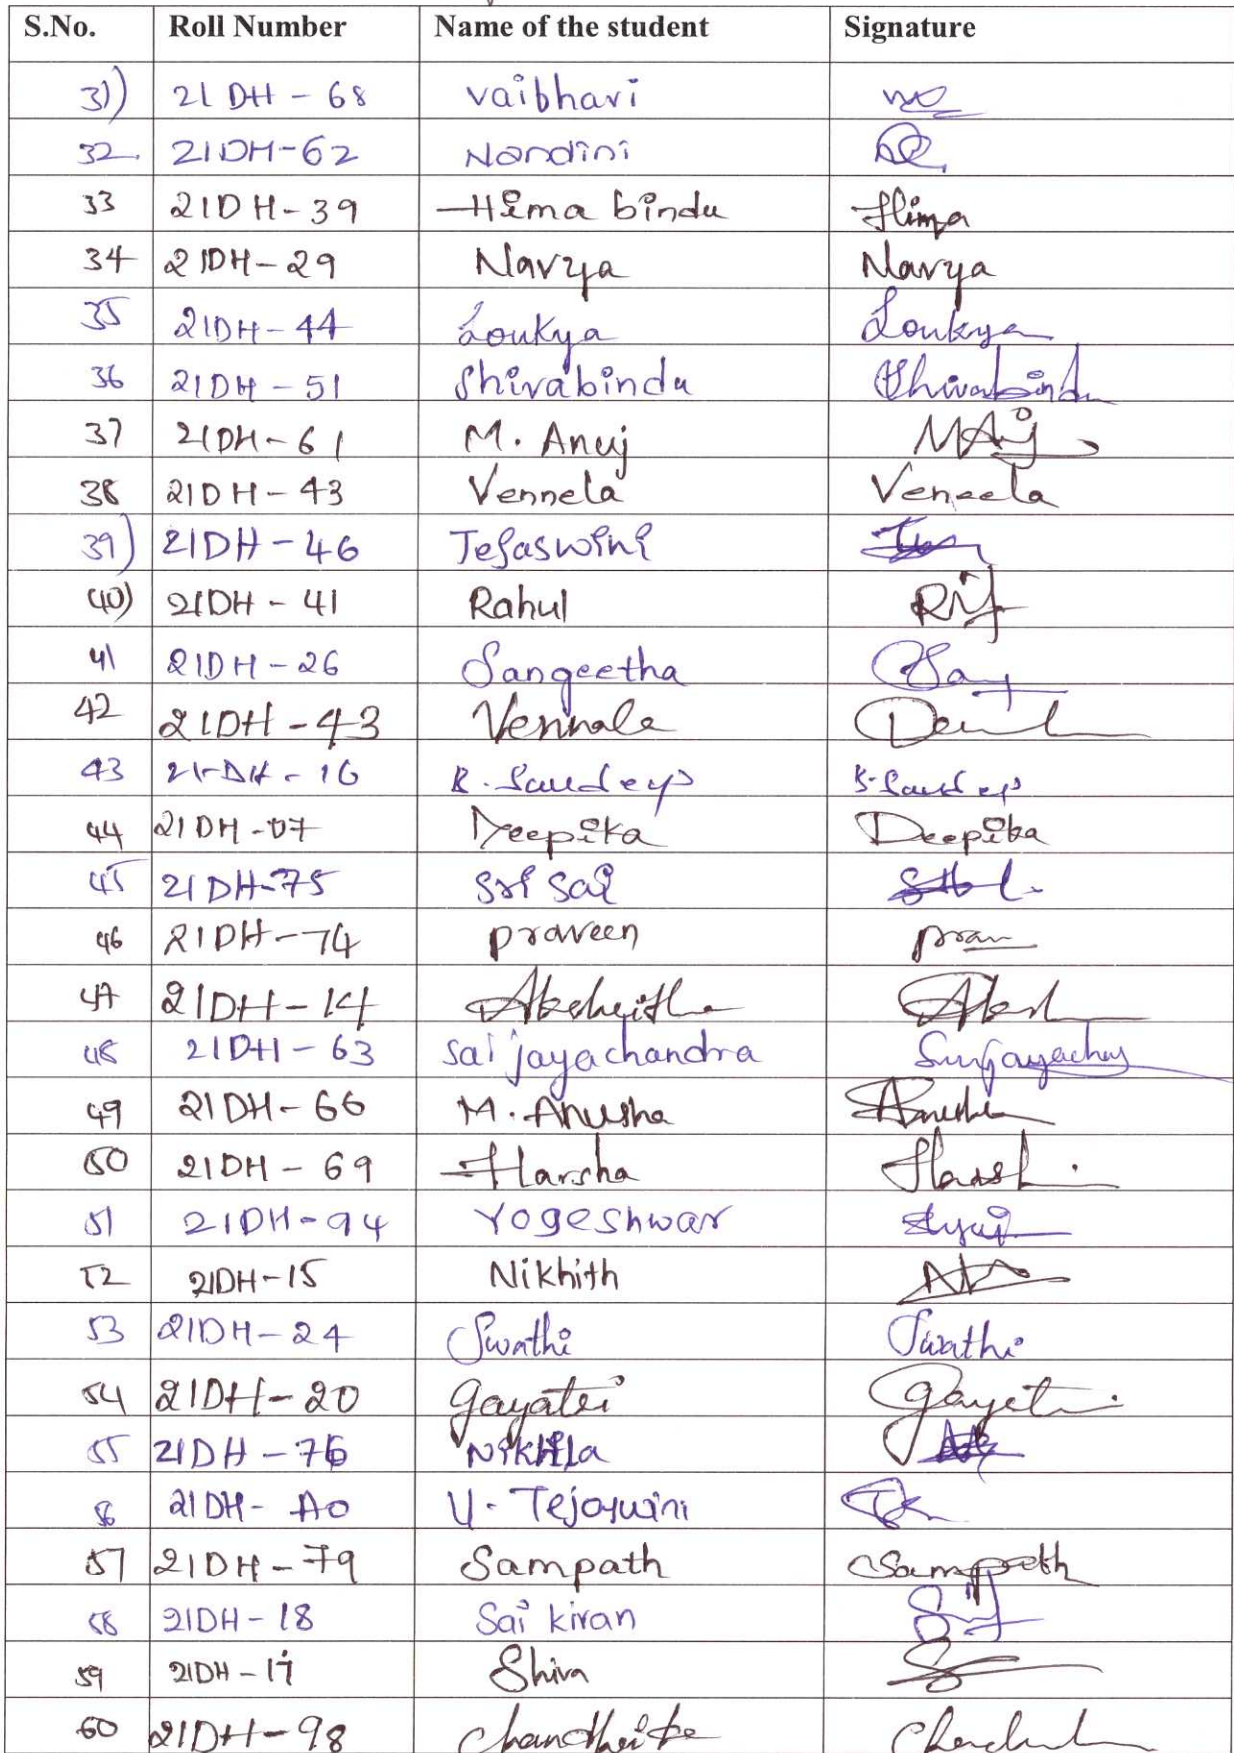 S.No. Roll Number Name of the student Signature
31) 21DH-68 vaibhavi
32. 21DH-62 Nandini
33 21DH-39 Hima bindu Hima
34 21DH-29 Navya Navya
35 21DH-44 Loukya Loukya
36 21DH-51 Shivabindu Shivabindu
37 21DH-61 M. Anuj MAj
38 21DH-43 Vennela Veneela
39) 21DH-46 Tejaswini
40) 21DH-41 Rahul
41 21DH-26 Sangeetha
42 21DH-43 Vennala
43 21-DH-16 K. Saudeep K. Saudeep
44 21DH-07 Deepika Deepika
45 21DH-75 Sri Sai
46 21DH-74 praveen
47 21DH-14 Aksheitha
48 21DH-63 Sai jayachandra
49 21DH-66 M. Anusha Anusha
50 21DH-69 Harsha
51 21DH-94 Yogeshwar
52 21DH-15 Nikhith
53 21DH-24 Swathi Swathi
54 21DH-20 gayatri
55 21DH-76 Nikhila
56 21DH-A0 V. Tejaswini
57 21DH-79 Sampath Sampath
58 21DH-18 Sai kiran
59 21DH-17 Shiva
60 21DH-98